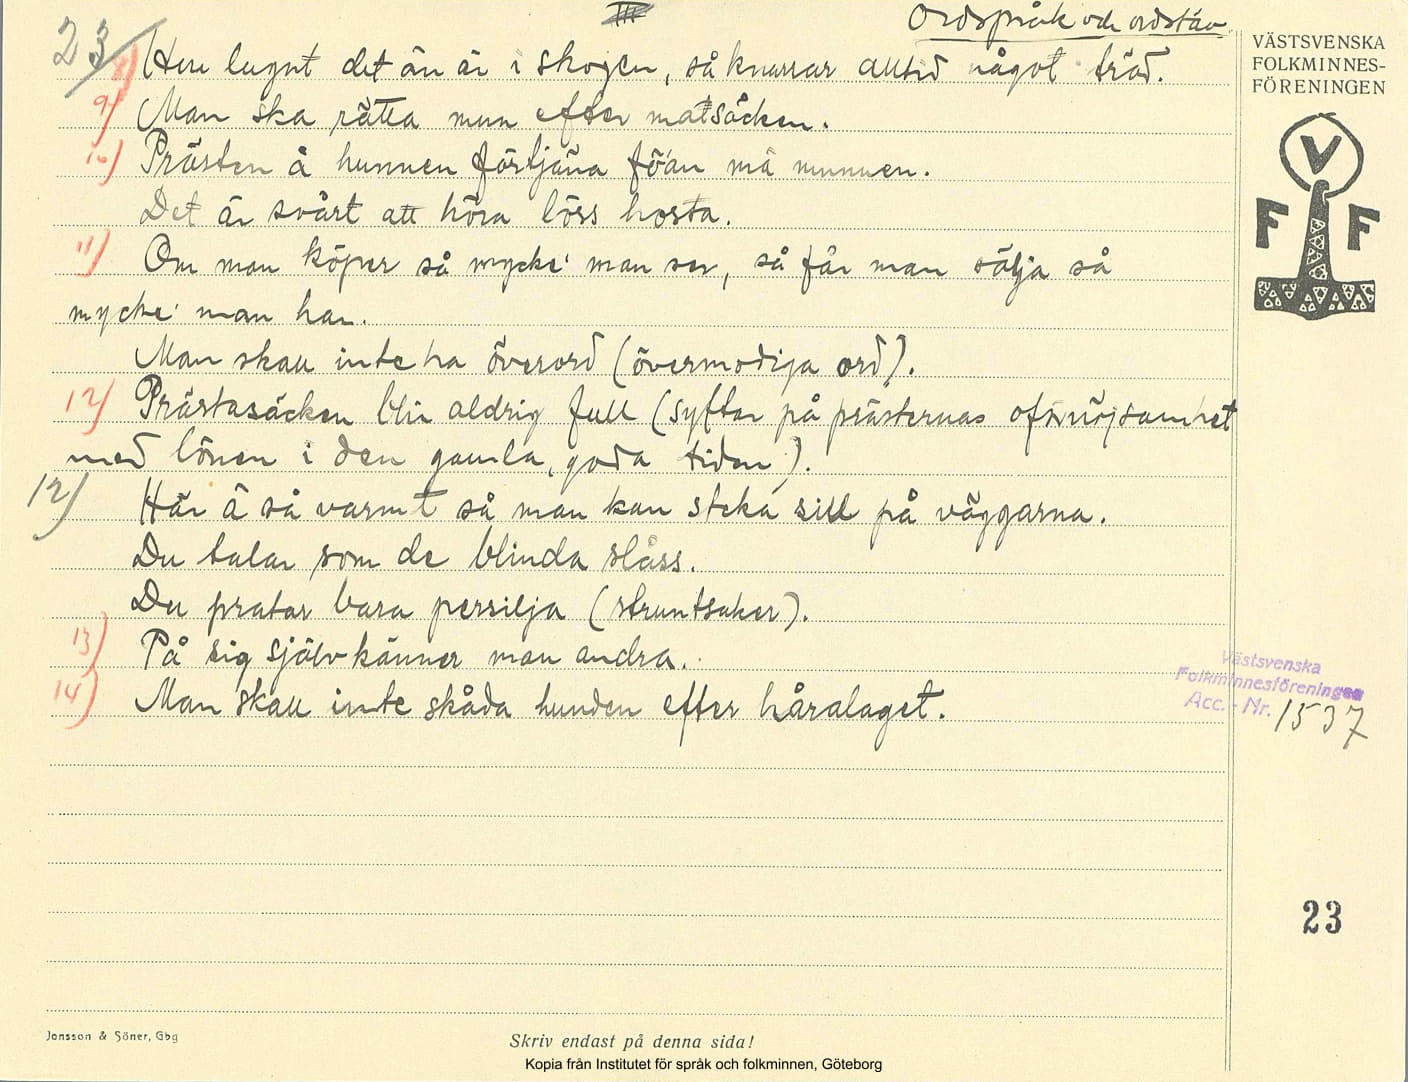 23
III
Ordspråk och ordstäv
8) Hur lugnt det än är i skogen, så knarrar alltid något träd.
9) Man ska rätta mun efter matsäcken.
10) Prästen å hunnen förtjäna fö'an mä munnen.
Det är svårt att höra löss hosta.
11) Om man köper så mycke' man ser, så får man sälja så
mycke' man har.
Man skall inte ha överord (övermodiga ord).
12) Prästasäcken blir aldrig full (syftar på prästernas oförnöjsamhet
med lönen i den gamla, goda tiden).
12) Här ä så varmt så man kan steka sill på väggarna.
Du talar som de blinda slåss.
Du pratar bara persilja (struntsaker).
13) På sig själv känner man andra.
14) Man skall inte skåda hunden efter håralaget.
VÄSTSVENSKA
FOLKMINNES-
FÖRENINGEN
V
F F
Västsvenska
Folkminnesföreningen
Acc. - Nr. 1537
23
Jonsson & Söner, Gbg
Skriv endast på denna sida!
Kopia från Institutet för språk och folkminnen, Göteborg